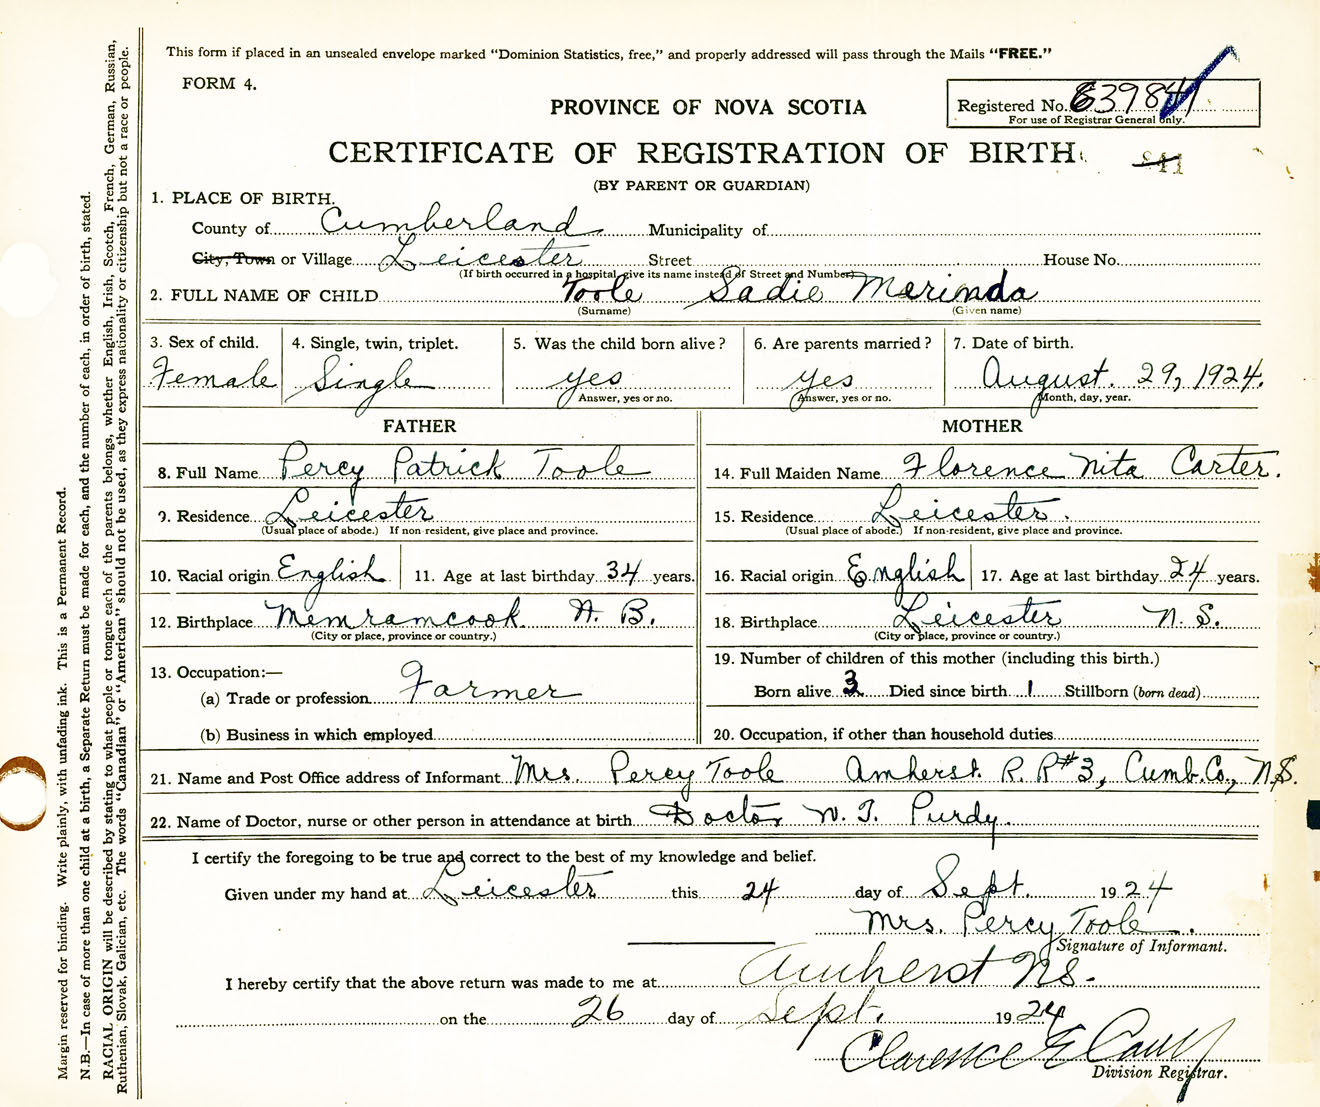 This form if placed in an unsealed envelope marked “Dominion Statistics, free,” and properly addressed will pass through the Mails “FREE.”
FORM 4.
PROVINCE OF NOVA SCOTIA
Registered No. 639841
For use of Registrar General only.
CERTIFICATE OF REGISTRATION OF BIRTH
(BY PARENT OR GUARDIAN)
1. PLACE OF BIRTH.
County of Cumberland Municipality of
City, Town or Village Leicester Street House No.
(If birth occurred in a hospital give its name instead of Street and Number)
2. FULL NAME OF CHILD Toole Sadie Merinda
(Surname) (Given name)
3. Sex of child. 4. Single, twin, triplet. 5. Was the child born alive? 6. Are parents married? 7. Date of birth.
Female Single yes yes August. 29, 1924.
Answer, yes or no. Answer, yes or no. Month, day, year.
FATHER MOTHER
8. Full Name Percy Patrick Toole 14. Full Maiden Name Florence Nita Carter.
9. Residence Leicester 15. Residence Leicester.
(Usual place of abode.) If non-resident, give place and province. (Usual place of abode.) If non-resident, give place and province.
10. Racial origin English 11. Age at last birthday 34 years. 16. Racial origin English 17. Age at last birthday 24 years.
12. Birthplace Memramcook N. B. 18. Birthplace Leicester N. S.
(City or place, province or country.) (City or place, province or country.)
13. Occupation:— 19. Number of children of this mother (including this birth.)
(a) Trade or profession Farmer Born alive 3 Died since birth 1 Stillborn (born dead)
(b) Business in which employed 20. Occupation, if other than household duties
21. Name and Post Office address of Informant Mrs. Percy Toole Amherst R. R#3, Cumb. Co., N.S.
22. Name of Doctor, nurse or other person in attendance at birth Doctor W. T. Purdy.
I certify the foregoing to be true and correct to the best of my knowledge and belief.
Given under my hand at Leicester this 24 day of Sept. 1924
Mrs. Percy Toole.
Signature of Informant.
I hereby certify that the above return was made to me at Amherst NS.
on the 26 day of Sept. 1924
Clarence E
Division Registrar.
Margin reserved for binding. Write plainly, with unfading ink. This is a Permanent Record.
N.B.—In case of more than one child at a birth, a Separate Return must be made for each, and the number of each, in order of birth, stated.
RACIAL ORIGIN will be described by stating to what people or tongue each of the parents belongs, whether English, Irish, Scotch, French, German, Russian,
Ruthenian, Slovak, Galician, etc. The words “Canadian” or “American” should not be used, as they express nationality or citizenship but not a race or people.